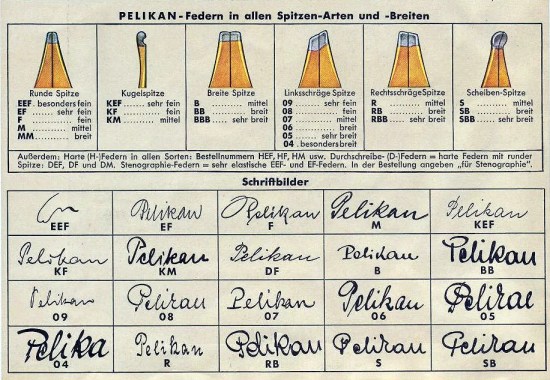 PELIKAN-Federn in allen Spitzen-Arten und -Breiten
Runde Spitze
EEF. besonders fein
EF ...... sehr fein
F .............. fein
M ........... mittel
MM ......... breit
Kugelspitze
KEF .... sehr fein
KF ............ fein
KM ........ mittel
Breite Spitze
B ............ mittel
BB ............ breit
BBB ... sehr breit
Linksschräge Spitze
09 ........ sehr fein
08 ............... fein
07 ............ mittel
06 .............. breit
05 ....... sehr breit
04 . besonders breit
Rechtsschräge Spitze
R ............ mittel
RB ............ breit
RBB ... sehr breit
Scheiben-Spitze
S ............ mittel
SB ............ breit
SBB ... sehr breit
Außerdem: Harte (H-)Federn in allen Sorten: Bestellnummern HEF, HF, HM usw. Durchschreibe-(D-)Federn = harte Federn mit runder
Spitze: DEF, DF und DM. Stenographie-Federn = sehr elastische EEF- und EF-Federn. In der Bestellung angeben „für Stenographie“.
Schriftbilder
Pelikan Pelikan Pelikan Pelikan
EEF EF F M KEF
Pelikan Pelikan Pelikan Pelikan Pelikan
KF KM DF B BB
Pelikan Pelikan Pelikan
09 08 07 06 05
Pelika Pelikan Pelikan Pelikan Pelikan
04 R RB S SB